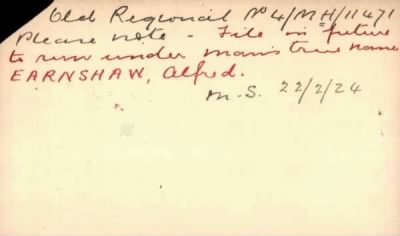 Old Regional No 4/MH/11471
Please note - File in future
to run under man's true name
EARNSHAW, Alfred.
M.S. 22/2/24